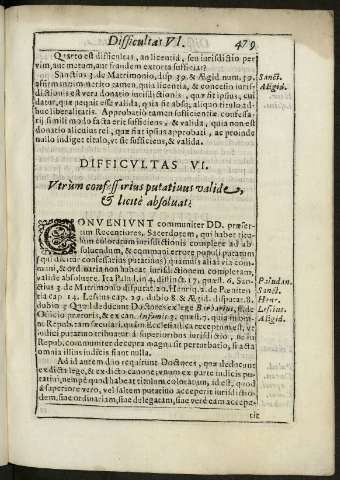 Difficultas VI. 479
Quarto est difficultas, an licentia, seu iurisdictio per
vim, aut metum, aut fraudem extorta sufficiat?
Sanctius 3. de Matrimonio, disp. 39. & Ægid. num. 59.
Sanct.
Ægid.
affirmant: nam metro licentia, & concessio iuris-
dictionis est vera donatio iurisdictionis, quæ fit ipsus, cui
datur, quæ nequit esse valida, quia fit absq; aliquo titulo ad-
huc liberalitatis. Approbatio tamen sufficientiæ confessa-
rij simili modo facta erit sufficiens, & valida, quia non est
donatio alicuius rei, quæ fiat ipsus approbati, ac proinde
nullo indiget titulo, vt sit sufficiens, & valida.
DIFFICVLTAS VI.
Vtrùm confessarius putatiuus valide,
& licitè absoluat?
CONVENIVNT communiter DD. præser-
tim Recentiores, Sacerdotem, qui habet titu-
lum coloratum iurisdictionis complere ad ab-
soluendum, & cum pani errore populi putatum
(qui dicitur confessarius putatiuus) quamuis aliàs via com-
muni, & ordinaria non habeat iurisdictionem completam,
validè absoluere. Ita Palud. in 4. distinct. 17. quæst. 6. Sanct-
Paludan.
ius 3. de Matrimonio disputat. 20. Henriq. 2. de Pœniten-
Sanct.
ria cap. 14. Lesius cap. 29. dubio 8. & Ægid. disputat. 8.
Henr.
dubio 5. Quod deducunt Doctores ex lege Barbarius, ff. de
Lessius.
Officio prætoris, & ex can. Infamis 3. quæst. 7. quia
Ægid.
Repub. tam sæculari, quam Ecclesiastica receptum est, vt
iudici putatiuo tribuant à superioribus iurisdictio, ne in
Repub. communiter decepta magna sit perturbatio, si acta
omnia illius iudicis siant nulla.
Ad id autem duo requirunt Doctores, quæ deducunt
ex dicta lege, & ex dicto canone; vnum ex parte iudicis pu-
tatiui, nempè quod habeat titulum coloratum, id est, quod
à superiore vero, vel saltem putatiuo acceperit iurisdictio-
nem, siue ordinariam, siue delegatam, siue verè eam accepe-
rit